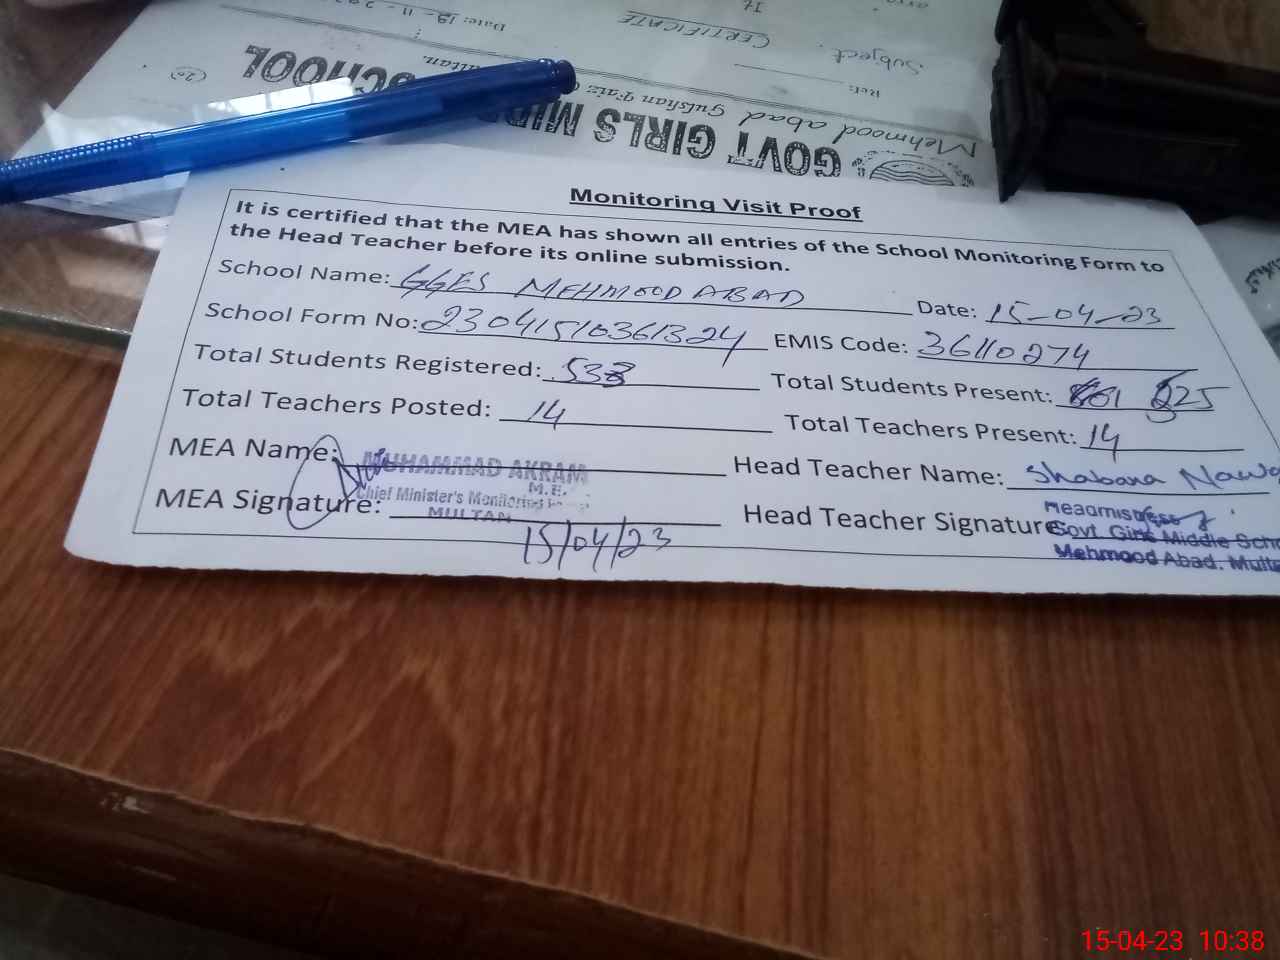 Date: 19-11-
It
CERTIFICATE
Subject
Ref:
Mehmood abad Gulshan Faiz Multan.
GOVT GIRLS SCHOOL
Monitoring Visit Proof
It is certified that the MEA has shown all entries of the School Monitoring Form to
the Head Teacher before its online submission.
School Name: GGES MEHMOOD ABAD Date: 15-04-23
School Form No: 23041510361324 EMIS Code: 36110274
Total Students Registered: 533 Total Students Present: 525
Total Teachers Posted: 14 Total Teachers Present: 14
MEA Name: MUHAMMAD AKRAM Head Teacher Name: Shabana
M.E.
Chief Minister's Monitoring
MEA Signature: MULTAN Head Teacher Signature
15/04/23
Headmistress
Govt. Girls Middle
Mehmood Abad.
15-04-23 10:38